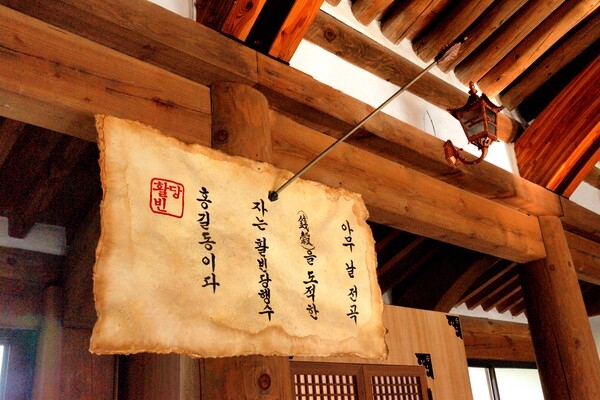 아무 날 전곡
(錢穀)을 도적한
자는 활빈당행수
홍길동이다
활빈당